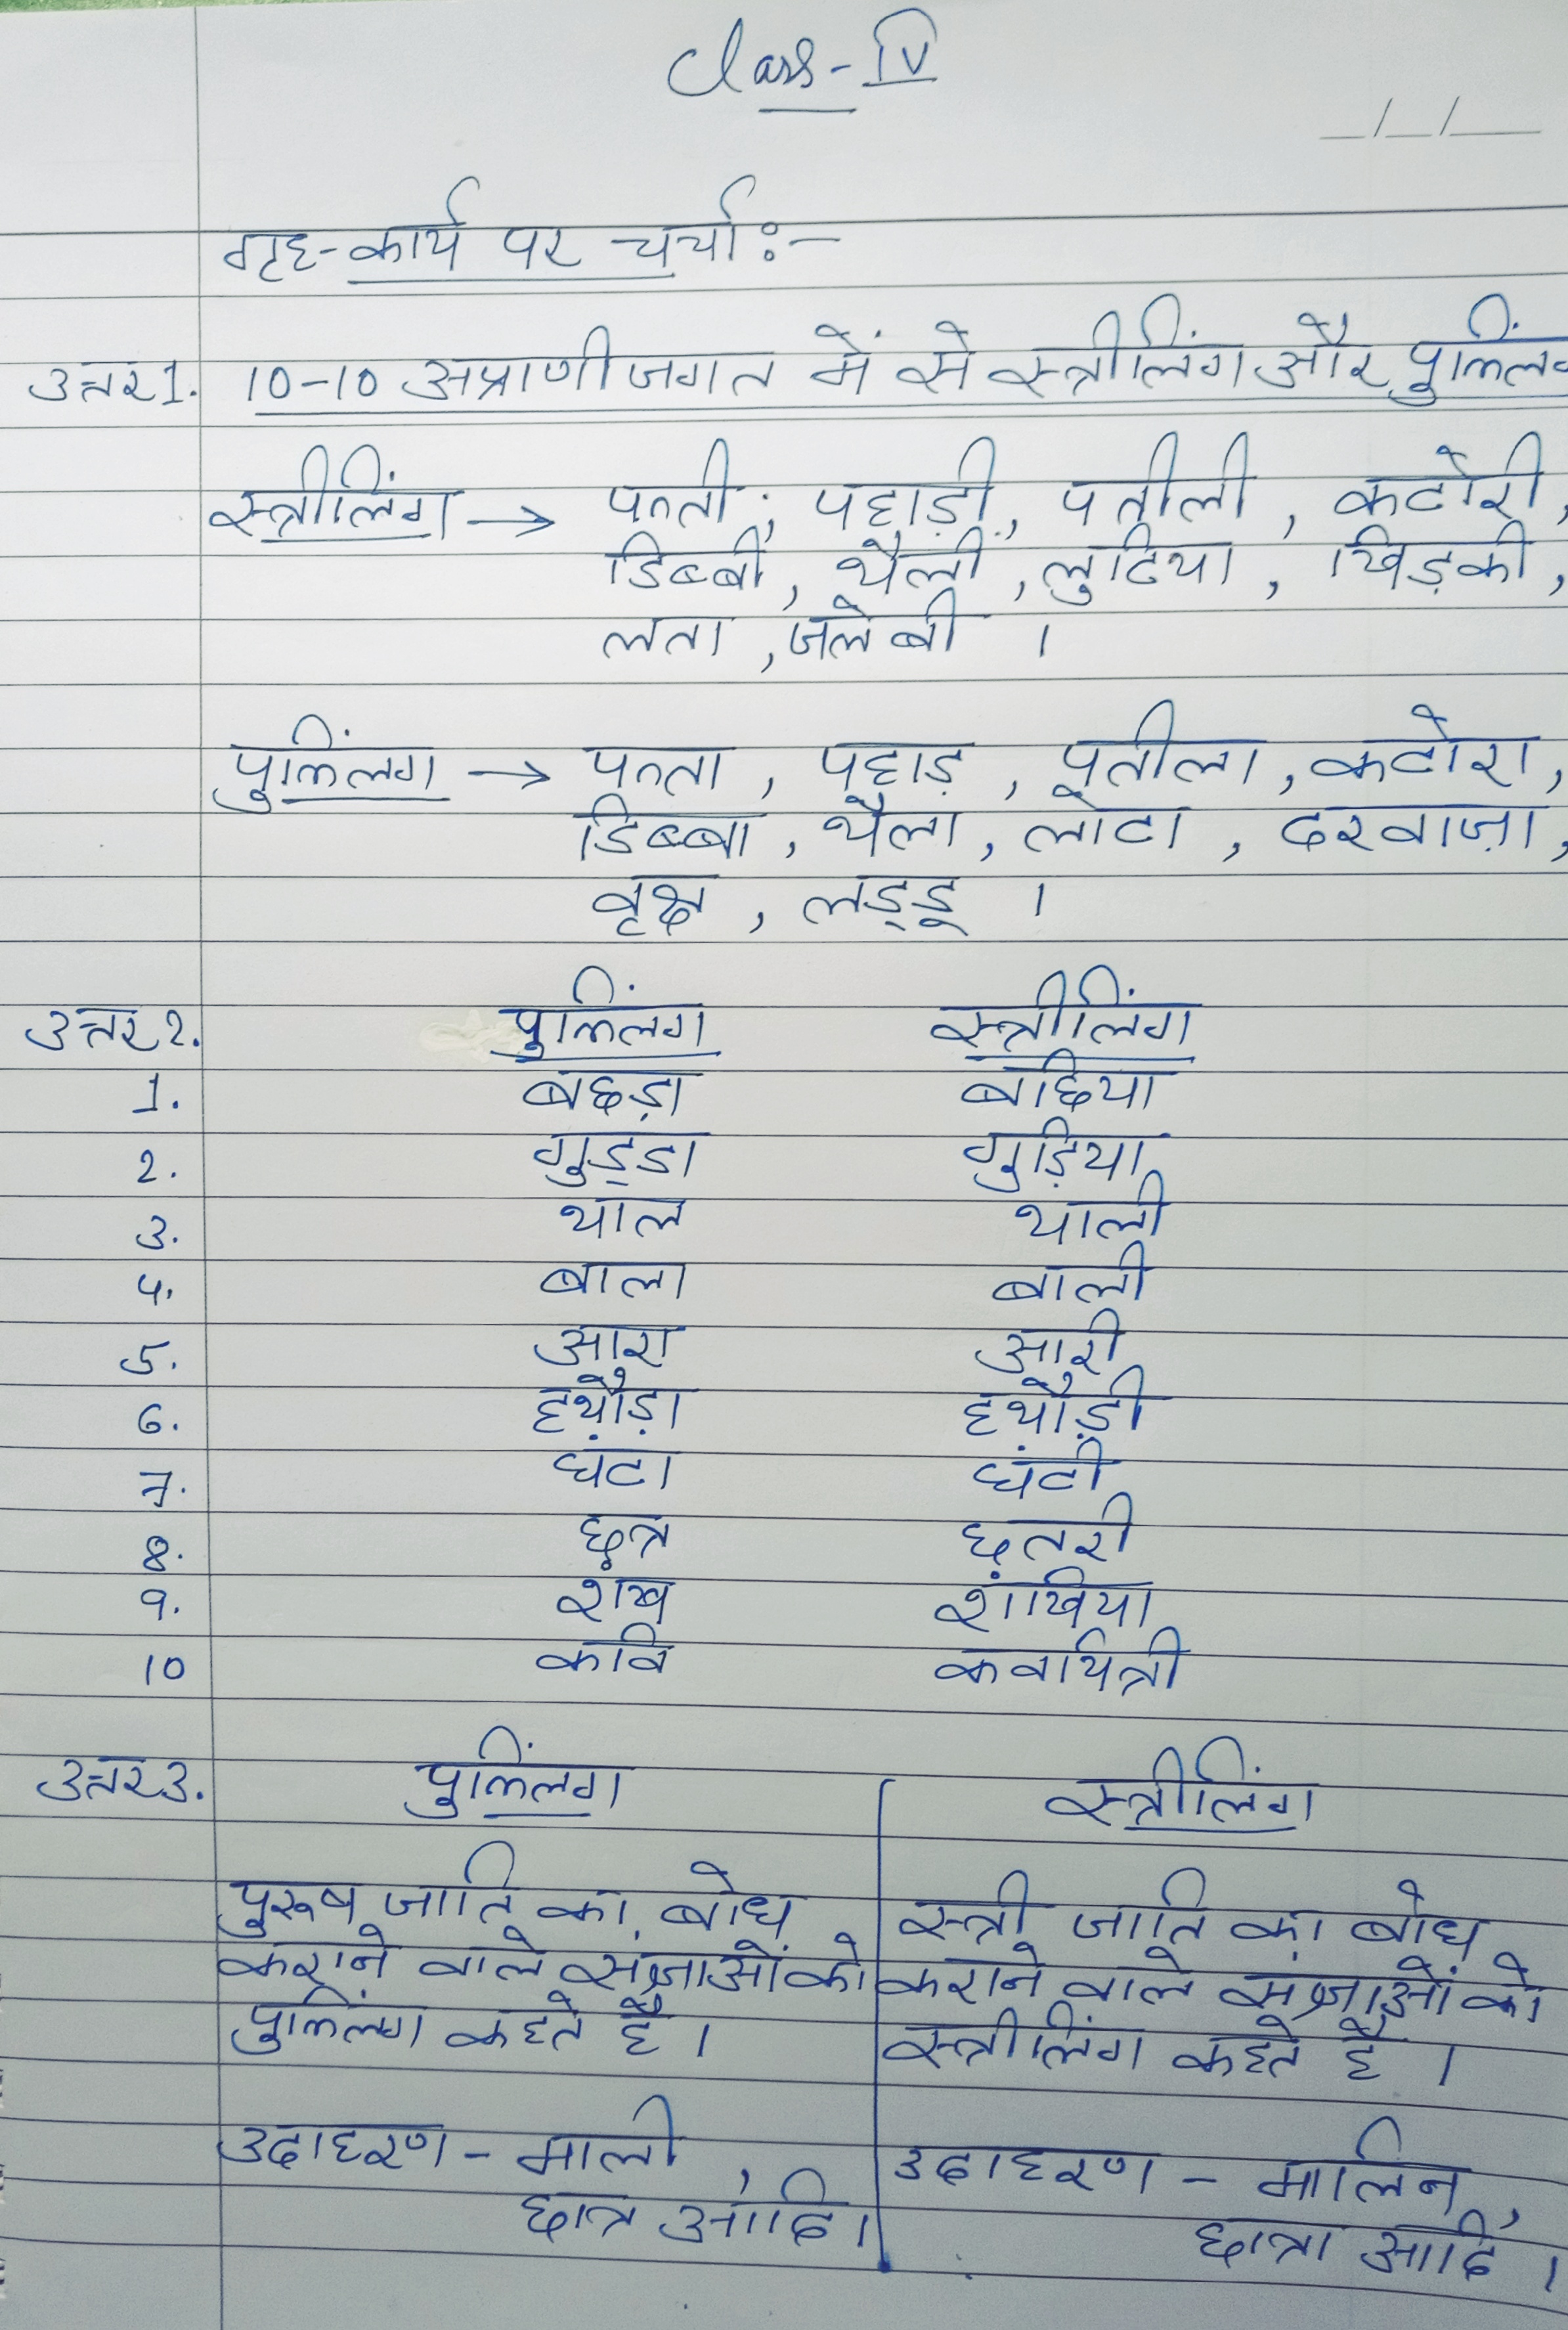 Class - IV
_/_/_
गृह-कार्य पर चर्चा :-
उत्तर 1. 10-10 अप्राणी जगत में से स्त्रीलिंग और पुल्लिंग
स्त्रीलिंग → पत्ती, पहाड़ी, पतीली, कटोरी,
डिब्बी, थैली, लुटिया, खिड़की,
लता, जलेबी ।
पुल्लिंग → पत्ता, पहाड़, पतीला, कटोरा,
डिब्बा, थैला, लोटा, दरवाज़ा,
वृक्ष, लड्डू ।
उत्तर 2. पुल्लिंग स्त्रीलिंग
1. बछड़ा बछिया
2. गुड्डा गुड़िया
3. थाल थाली
4. बाला बाली
5. आरा आरी
6. हथौड़ा हथौड़ी
7. घंटा घंटी
8. छत्र छतरी
9. शंख शंखिया
10 कवि कवयित्री
उत्तर 3. पुल्लिंग स्त्रीलिंग
पुरुष जाति का बोध
कराने वाले संज्ञाओं को
पुल्लिंग कहते है ।
उदाहरण - माली,
छात्र आदि ।
स्त्री जाति का बोध
कराने वाले संज्ञाओं को
स्त्रीलिंग कहते है ।
उदाहरण - मालिन,
छात्रा आदि ।